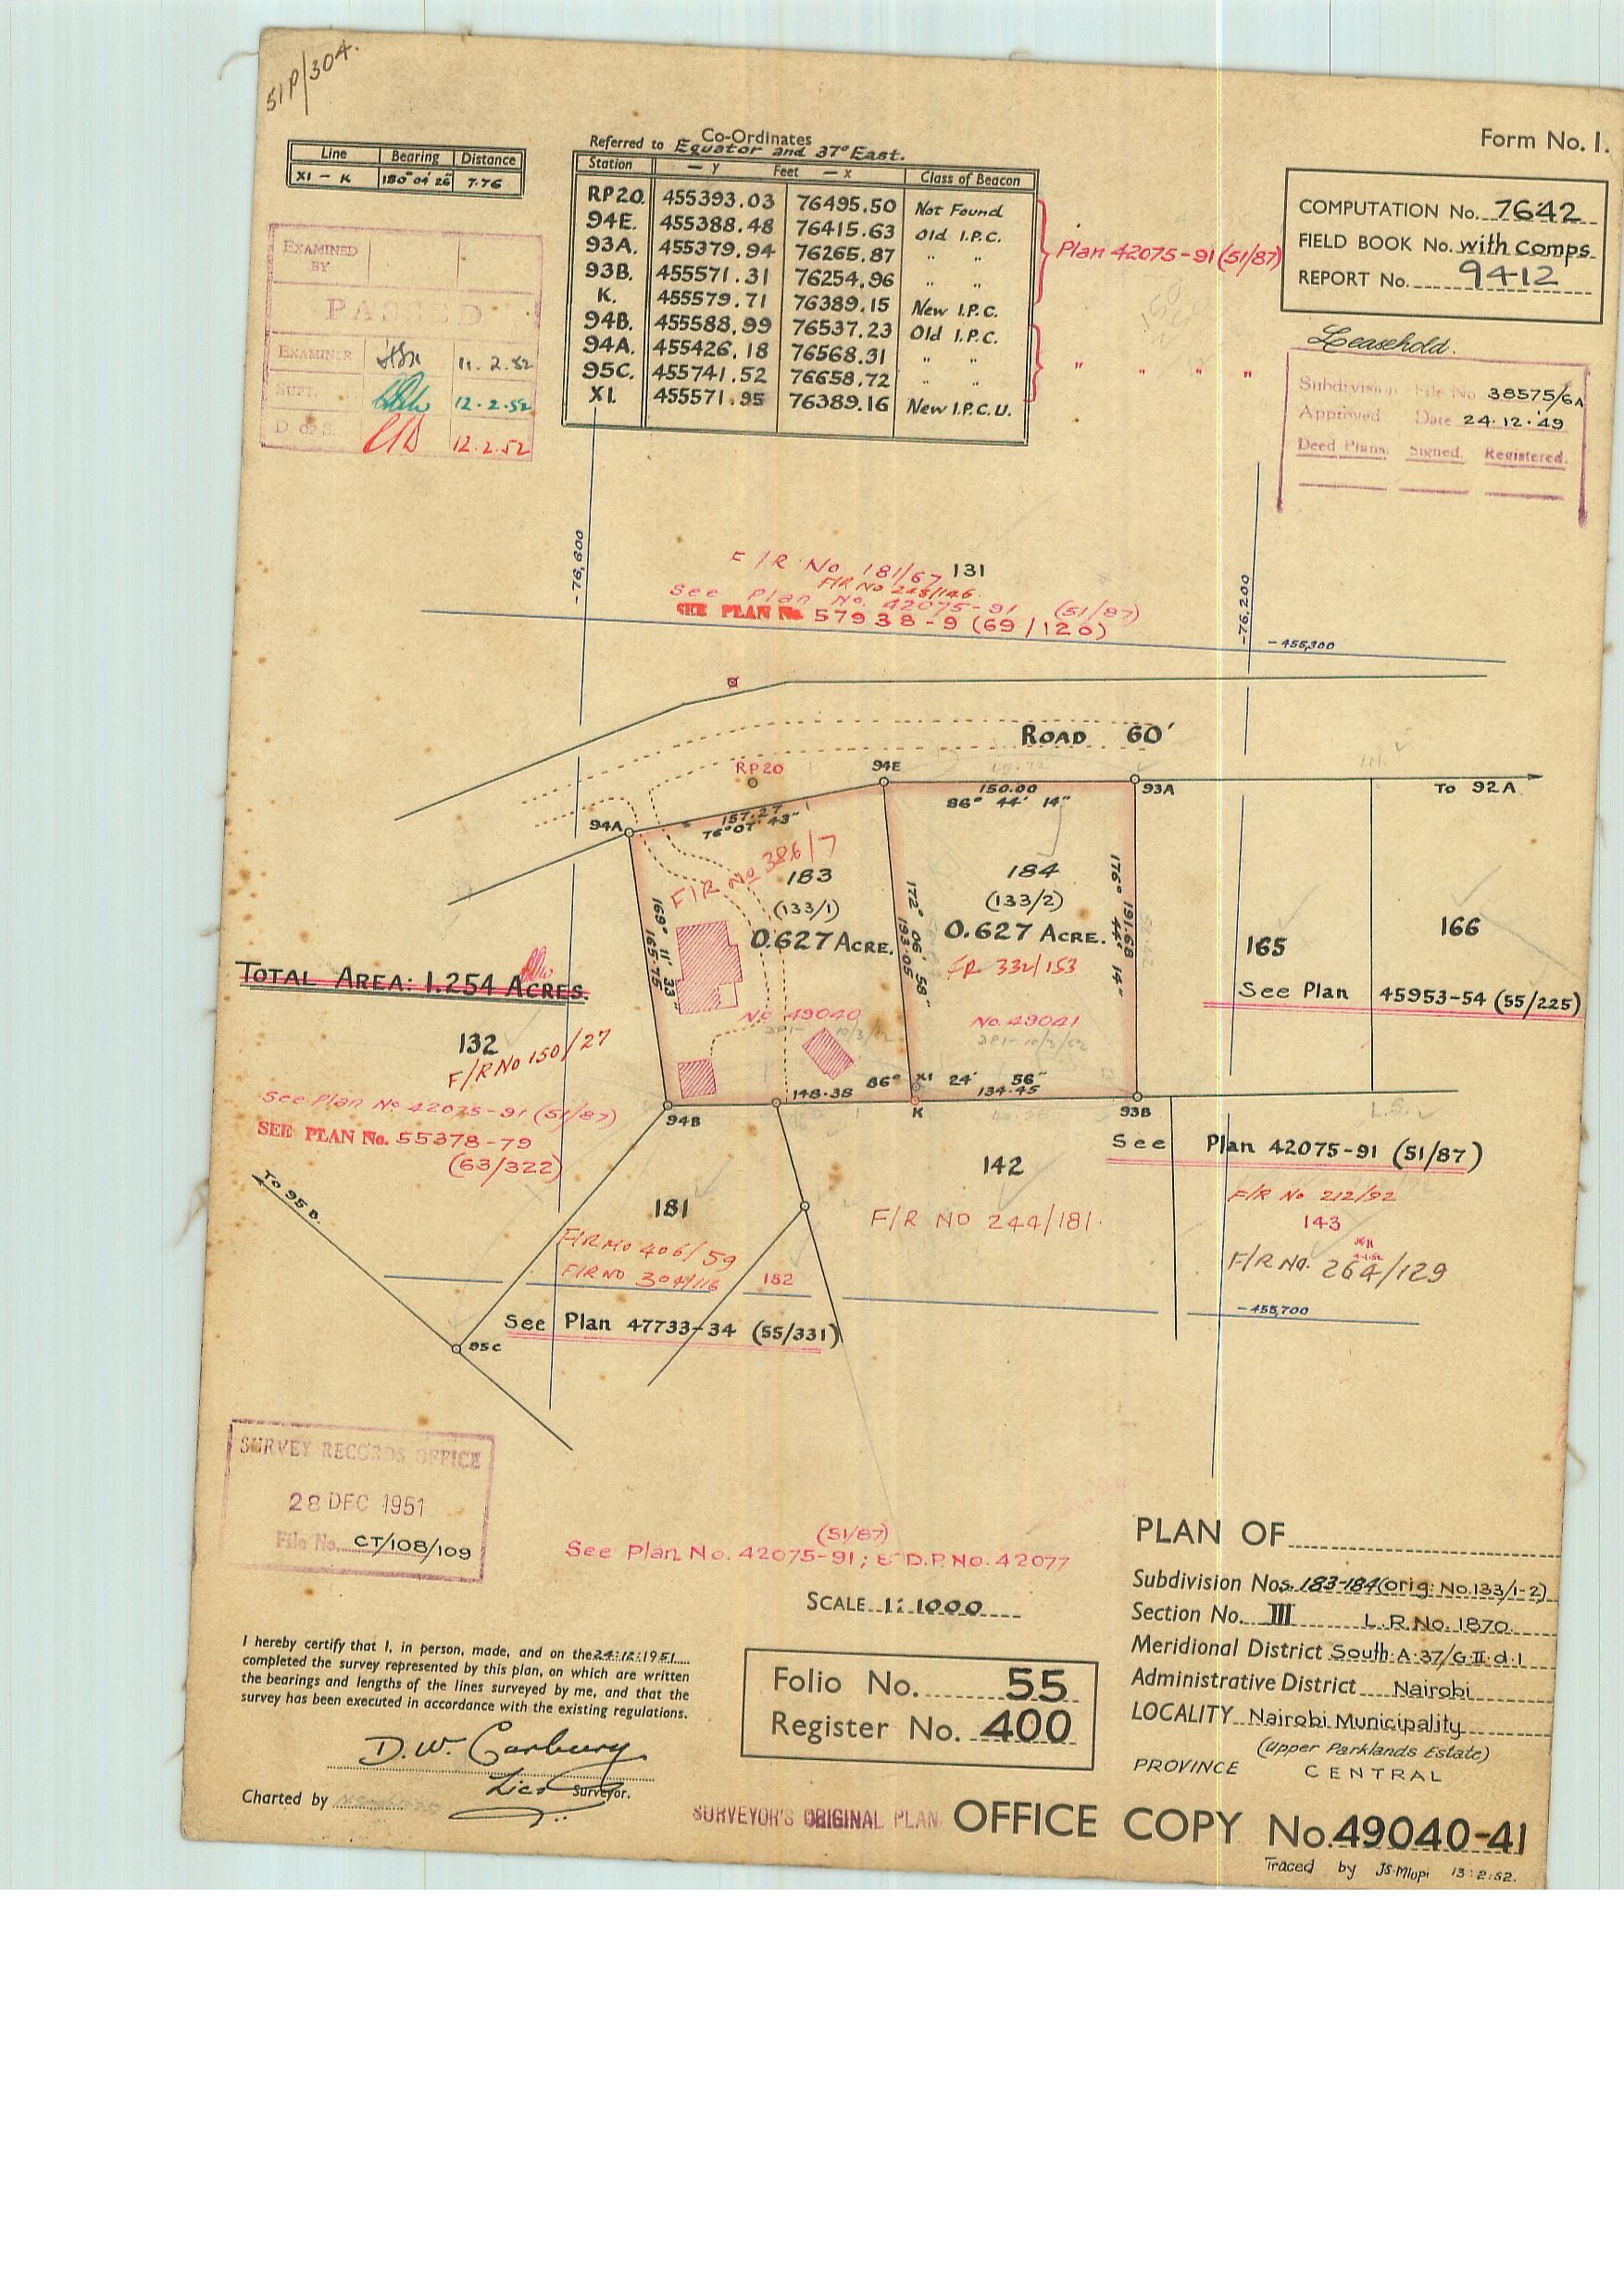 51P/304.
Form No. I.
Line Bearing Distance
XI - K 180° 04' 26" 7.76
Co-Ordinates
Referred to Equator and 37° East.
Station — y Feet — x Class of Beacon
RP20. 455393.03 76495.50 Not Found
94E. 455388.48 76415.63 Old I.P.C.
93A. 455379.94 76265.87 " "
93B. 455571.31 76254.96 " "
K. 455579.71 76389.15 New I.P.C.
94B. 455588.99 76537.23 Old I.P.C
94A. 455426.18 76568.31 " "
95C. 455741.52 76658.72 " "
XI. 455571.95 76389.16 New I.P.C.U.
Plan 42075-91 (51/87)
" " " "
COMPUTATION No. 7642
FIELD BOOK No. with Comps.
REPORT No. 9412
Leasehold.
Subdivision File No 38575/6A
Approved Date 24.12.49
Deed Plans. Signed. Registered.
EXAMINED
BY
PASSED
EXAMINER 11.2.52
SUPT. 12.2.52
D. of S. 12.2.52
-76,600
-76,200
F/R No 181/67 131
F/R No 248/146.
See Plan No. 42075-91 (51/87)
SEE PLAN No. 57938-9 (69/120)
-455,300
ROAD 60'
RP20
94E
93A
To 92A
150.00
86° 44' 14"
94A
157.27
76° 07' 43"
F/R No 386/7
183
(133/1)
0.627 ACRE.
184
(133/2)
0.627 ACRE.
FR 332/153
169° 11' 33"
165.75
172° 06' 58"
193.05
176° 44' 14"
191.68
165
166
See Plan 45953-54 (55/225)
TOTAL AREA: 1.254 ACRES.
No. 49040
No. 49041
132
F/R No 150/27
See Plan No 42075-91 (51/87)
SEE PLAN No. 55378-79
(63/322)
148.38 86° XI 24' 56"
134.45
94B
K
93B
See Plan 42075-91 (51/87)
142
F/R No 244/181.
F/R No 212/92
143
F/R No. 264/129
To 95B.
181
F/R No 406/59
F/R No 304/116
182
-455,700
See Plan 47733-34 (55/331)
95C
SURVEY RECORDS OFFICE
28 DEC 1951
File No. CT/108/109
(51/87)
See Plan No. 42075-91; & D.P. No. 42077
SCALE 1:1000
I hereby certify that I, in person, made, and on the 24:12:1951
completed the survey represented by this plan, on which are written
the bearings and lengths of the lines surveyed by me, and that the
survey has been executed in accordance with the existing regulations.
D.W. Garbury
Lic. Surveyor.
Charted by
Folio No. 55
Register No. 400
PLAN OF
Subdivision Nos. 183-184 (orig: No. 133/1-2)
Section No. III L.R. No. 1870.
Meridional District South A-37/G.II.d.1
Administrative District Nairobi
LOCALITY Nairobi Municipality
(Upper Parklands Estate)
PROVINCE CENTRAL
SURVEYOR'S ORIGINAL PLAN
OFFICE COPY No. 49040-41
Traced by JS.Mlupi 13:2:52.